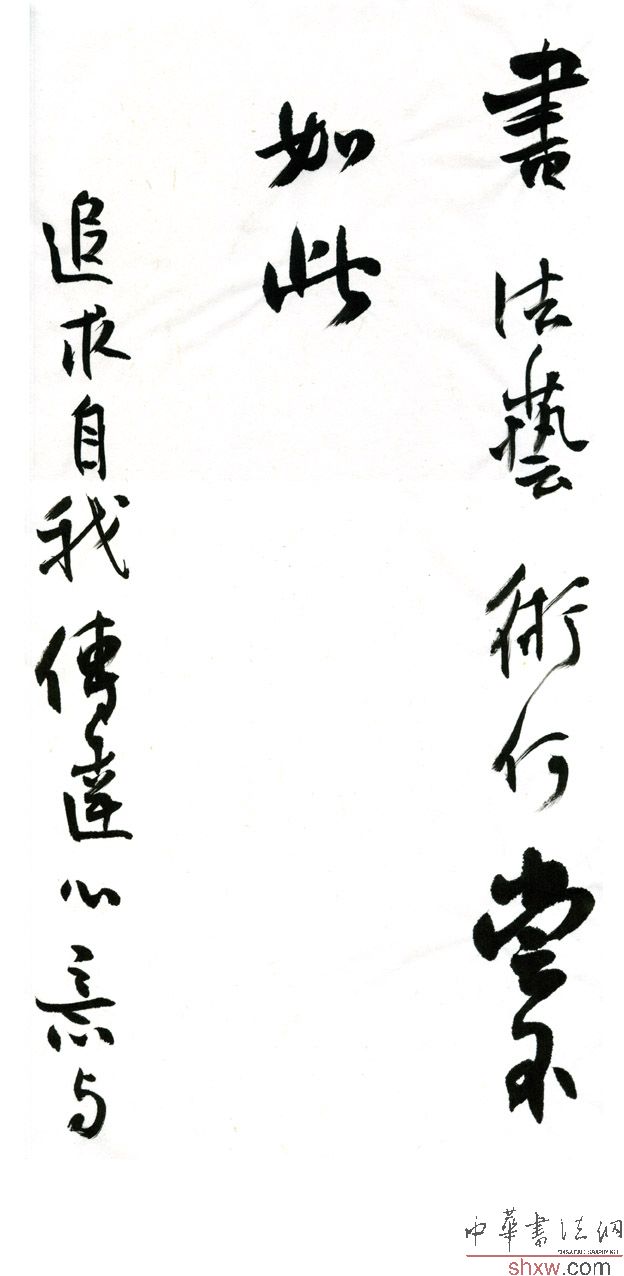 書法藝術何嘗不
如此
追求自我傳達心意与
中華書法網
shxw.com